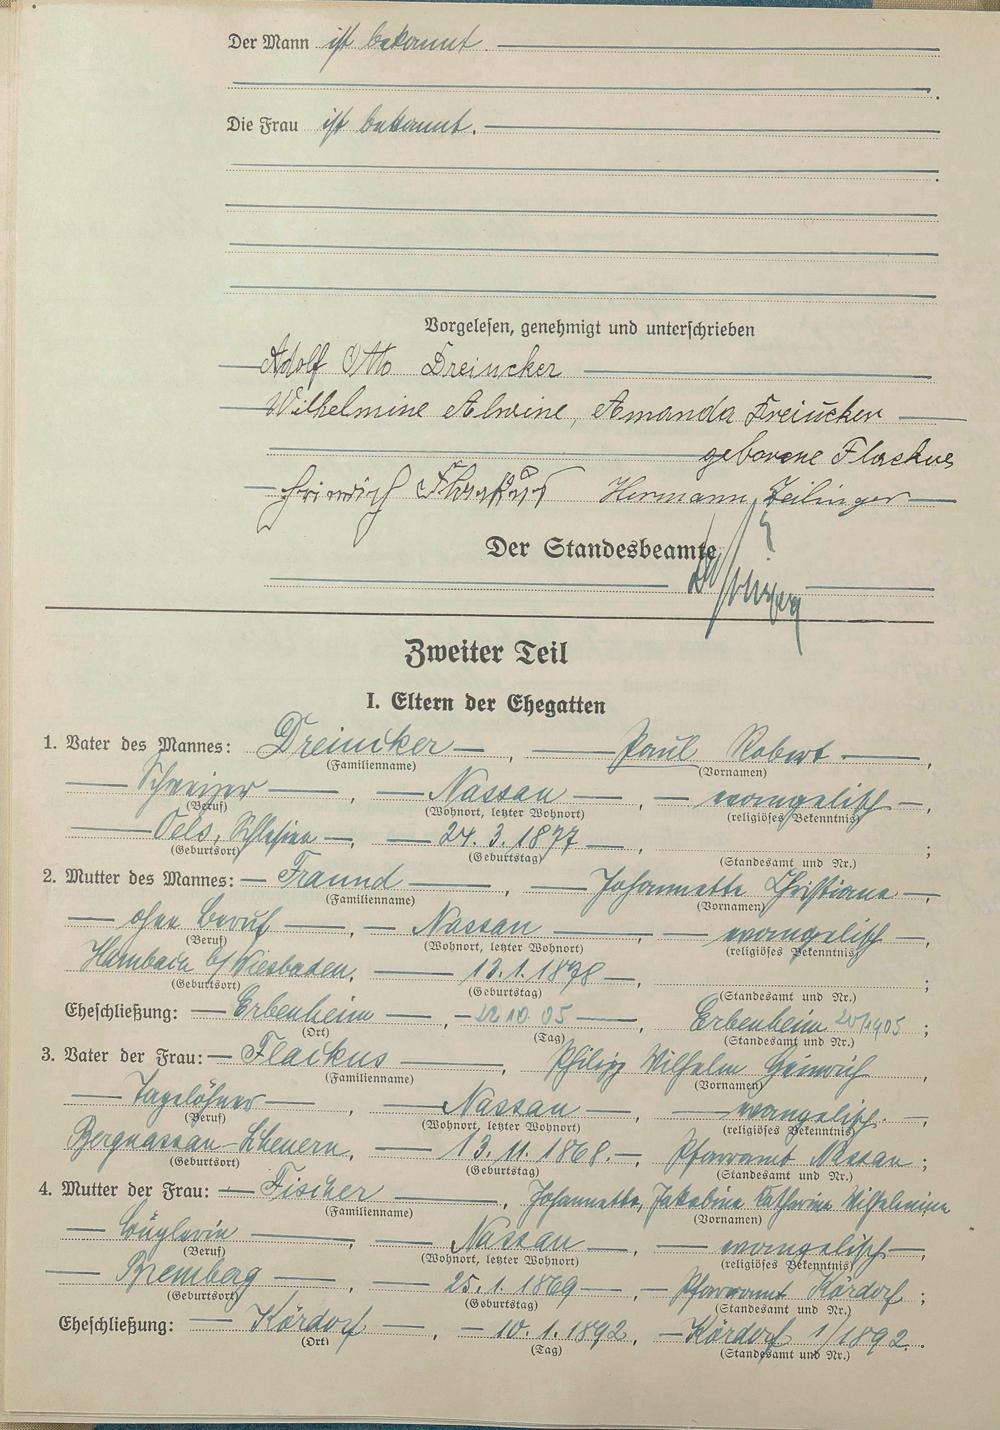 Der Mann ist bekannt.
Die Frau ist bekannt.
Vorgelesen, genehmigt und unterschrieben
Adolf Otto Dreiucker
Wilhelmine Alwine, Amanda Dreiucker
geborene Flackus
Heinrich Hermann Zeilinger
Der Standesbeamte
Zweiter Teil
I. Eltern der Ehegatten
1. Vater des Mannes: Dreiucker, Paul Robert,
(Familienname) (Vornamen)
Schweizer, Nassau, evangelisch,
(Beruf) (Wohnort, letzter Wohnort) (religiöses Bekenntnis)
Oels, Schlesien, 24. 3. 1877, ;
(Geburtsort) (Geburtstag) (Standesamt und Nr.)
2. Mutter des Mannes: Fraund, Johannette Christiane,
(Familienname) (Vornamen)
ohne Beruf, Nassau, evangelisch,
(Beruf) (Wohnort, letzter Wohnort) (religiöses Bekenntnis)
Hambach b/Wiesbaden, 13. 1. 1878, ;
(Geburtsort) (Geburtstag) (Standesamt und Nr.)
Eheschließung: Erbenheim, 22 10 05, Erbenheim 20/1905 ;
(Ort) (Tag) (Standesamt und Nr.)
3. Vater der Frau: Flackus, Philipp Wilhelm Heinrich,
(Familienname) (Vornamen)
Tagelöhner, Nassau, evangelisch,
(Beruf) (Wohnort, letzter Wohnort) (religiöses Bekenntnis)
Bergnassau-Scheuern, 13. 11. 1868., Pfarramt Nassau ;
(Geburtsort) (Geburtstag) (Standesamt und Nr.)
4. Mutter der Frau: Fischer, Johannette, Jakobine Katharine Wilhelmine
(Familienname) (Vornamen)
Büglerin, Nassau, evangelisch,
(Beruf) (Wohnort, letzter Wohnort) (religiöses Bekenntnis)
Bremberg, 25. 1. 1869, Pfarramt Kördorf ;
(Geburtsort) (Geburtstag) (Standesamt und Nr.)
Eheschließung: Kördorf, 10. 1. 1892, Kördorf 1/1892.
(Ort) (Tag) (Standesamt und Nr.)